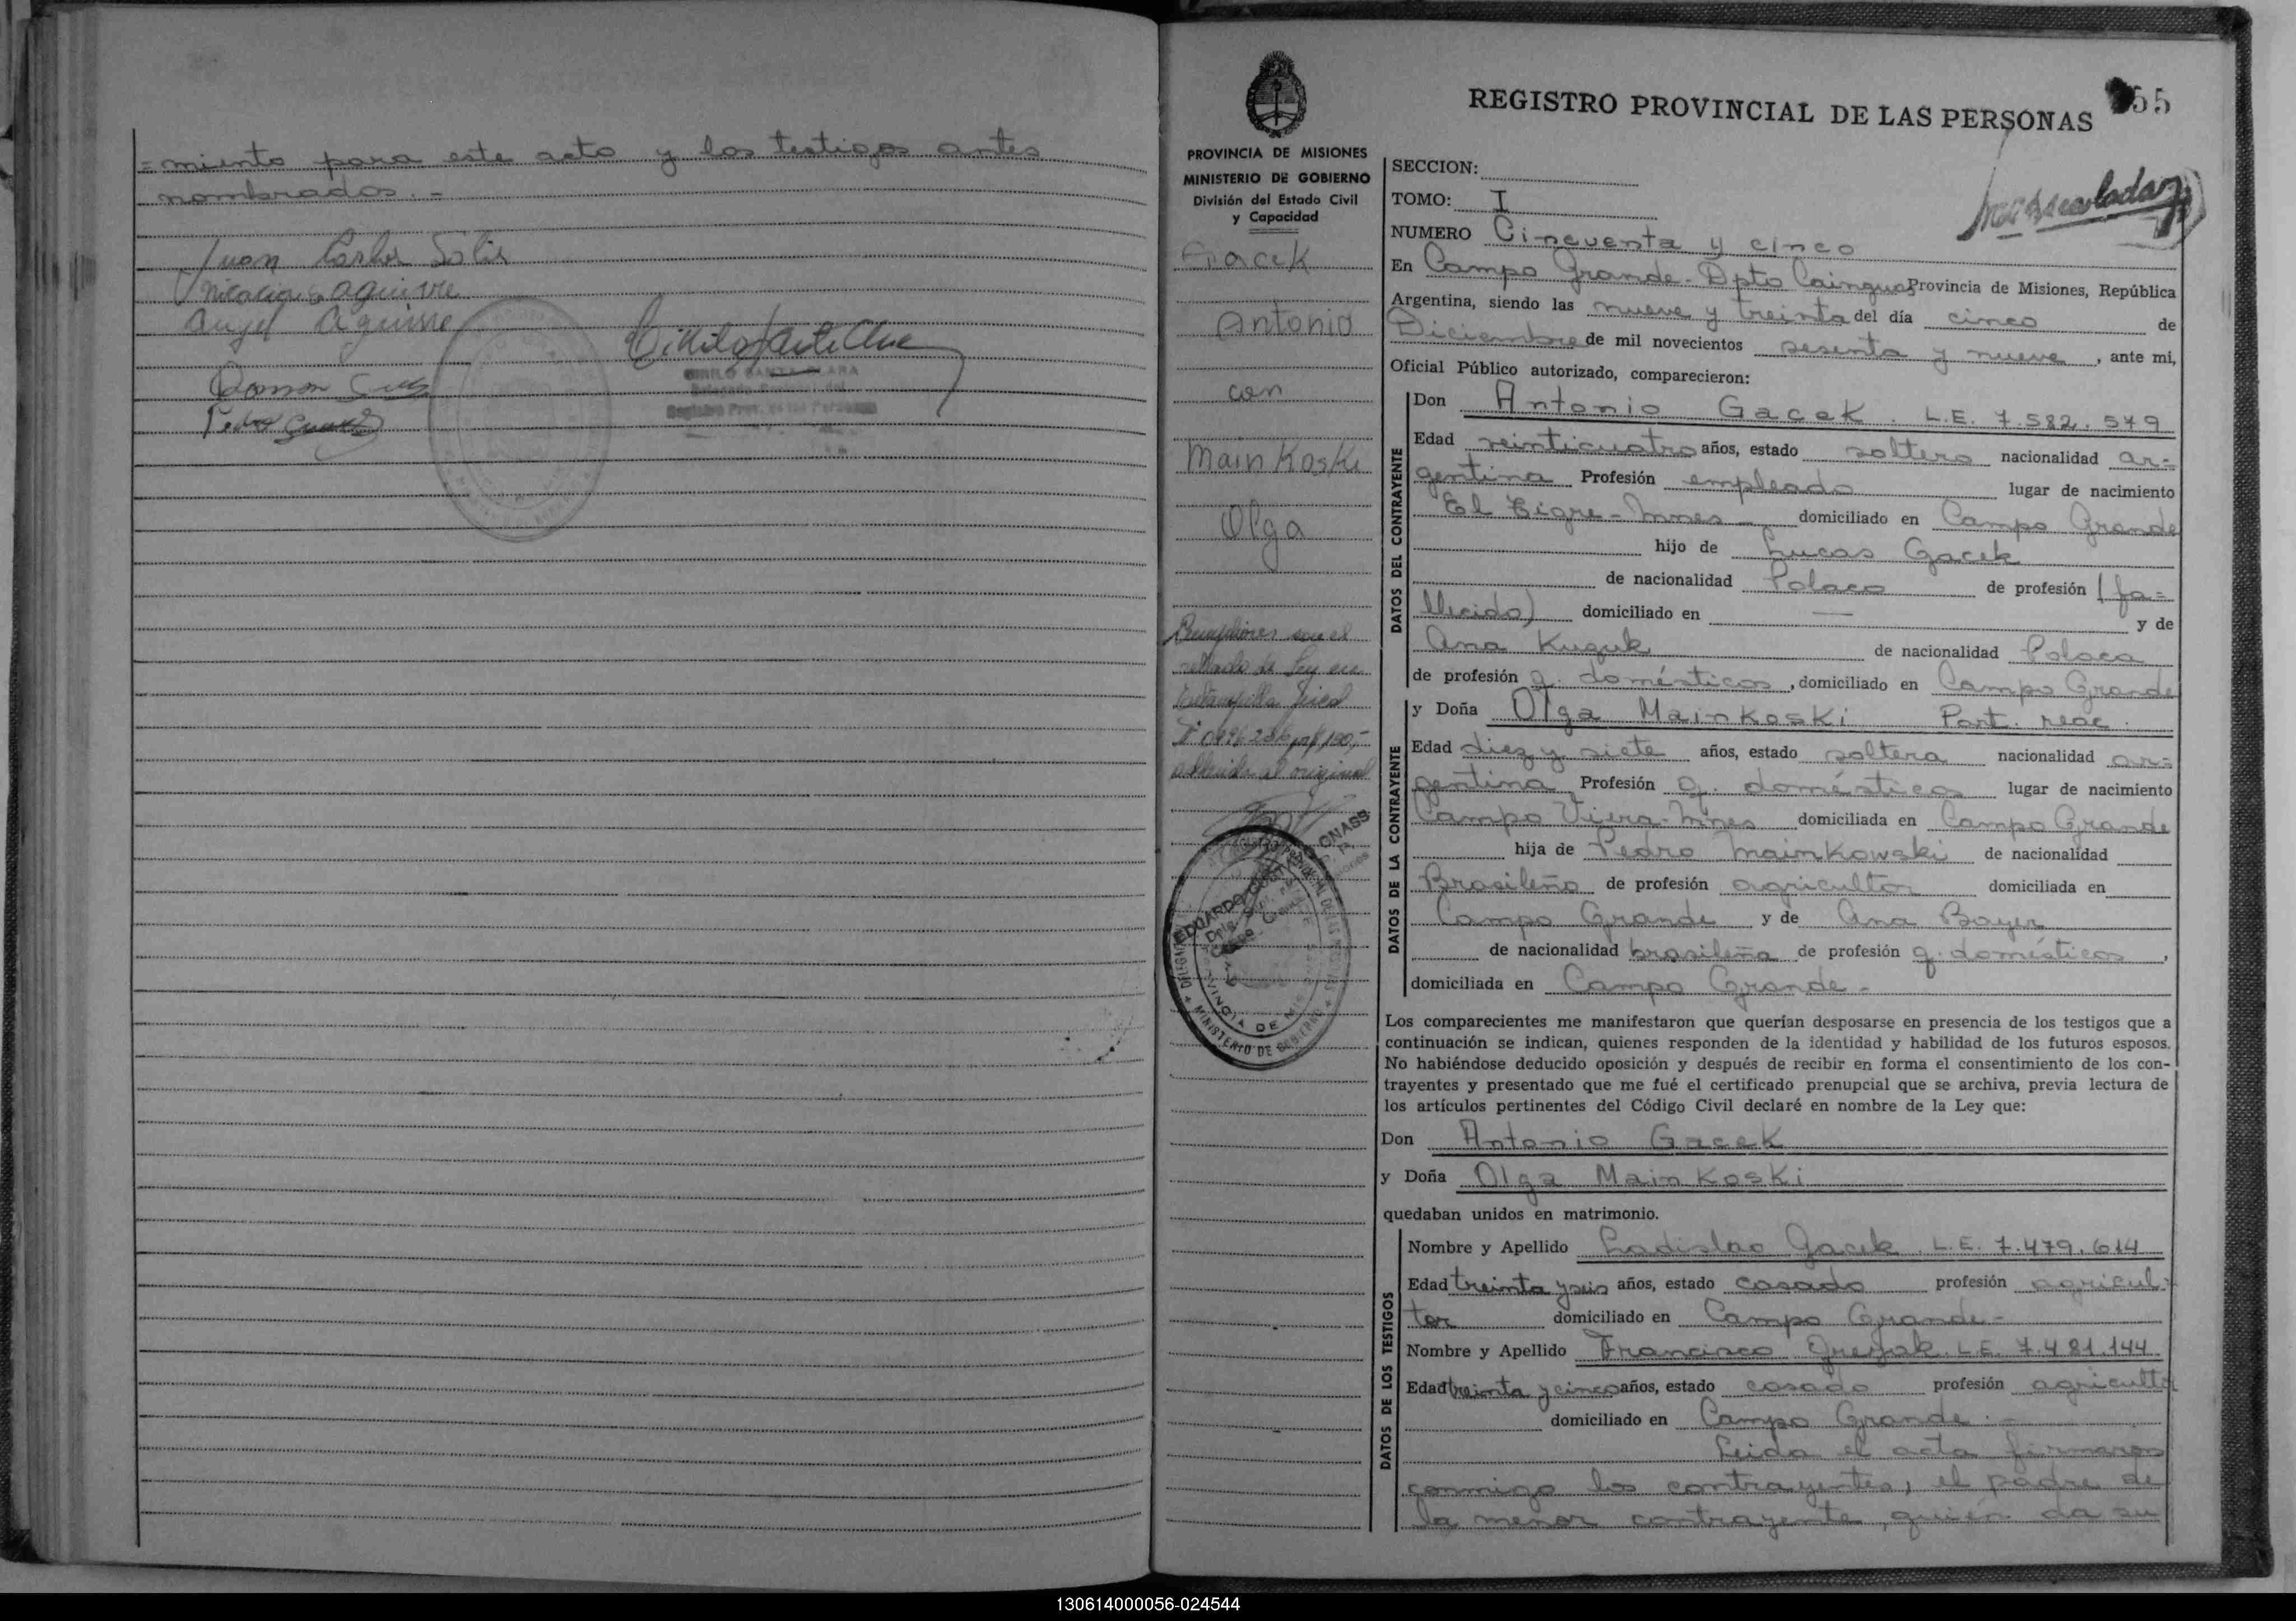 =miento para este acto y los testigos antes
nombrados.-
Juan Carlos Solis
Nicacia G aguirre
Angel Aguirre
Ramon
Pedro
CIRILO SANTA CLARA
PROVINCIA DE MISIONES
MINISTERIO DE GOBIERNO
División del Estado Civil
y Capacidad
Gacek
Antonio
con
Mainkoski
Olga
sellado de Ley en
Estampilla fiscal
adherida al original
EDUARDO
MINISTERIO DE GOBIERNO
REGISTRO PROVINCIAL DE LAS PERSONAS 55
SECCION:
TOMO: I
NUMERO Cincuenta y cinco
En Campo Grande - Dpto Cainguas Provincia de Misiones, República
Argentina, siendo las nueve y treinta del día cinco de
Diciembre de mil novecientos sesenta y nueve, ante mi,
Oficial Público autorizado, comparecieron:
DATOS DEL CONTRAYENTE
Don Antonio Gacek. L.E. 7.582.579
Edad veinticuatro años, estado soltero nacionalidad ar=
gentina Profesión empleado lugar de nacimiento
El Tigre - Mnes domiciliado en Campo Grande
hijo de Lucas Gacek
de nacionalidad Polaco de profesión (fa=
llecido) domiciliado en — y de
Ana Kuzuk de nacionalidad Polaca
de profesión q. domésticos, domiciliado en Campo Grande
DATOS DE LA CONTRAYENTE
y Doña Olga Mainkoski Part. nac.
Edad diez y siete años, estado soltera nacionalidad ar=
gentina Profesión q. domésticos lugar de nacimiento
Campo Viera - Mnes domiciliada en Campo Grande
hija de Pedro Mainkowski de nacionalidad
Brasileño de profesión agricultor domiciliada en
Campo Grande y de Ana Boyer
de nacionalidad brasileña de profesión q. domésticos,
domiciliada en Campo Grande.-
Los comparecientes me manifestaron que querían desposarse en presencia de los testigos que a
continuación se indican, quienes responden de la identidad y habilidad de los futuros esposos.
No habiéndose deducido oposición y después de recibir en forma el consentimiento de los con-
trayentes y presentado que me fué el certificado prenupcial que se archiva, previa lectura de
los artículos pertinentes del Código Civil declaré en nombre de la Ley que:
Don Antonio Gacek
y Doña Olga Mainkoski
quedaban unidos en matrimonio.
DATOS DE LOS TESTIGOS
Nombre y Apellido Ladislao Gacek. L.E. 7.479.614
Edad treinta y seis años, estado casado profesión agricul=
tor domiciliado en Campo Grande.-
Nombre y Apellido Francisco L.E. 7.481.144
Edad treinta y cinco años, estado casado profesión agricultor
domiciliado en Campo Grande.-
Leida el acta firmaron
conmigo los contrayentes, el padre de
la menor contrayente, quién da su
130614000056-024544